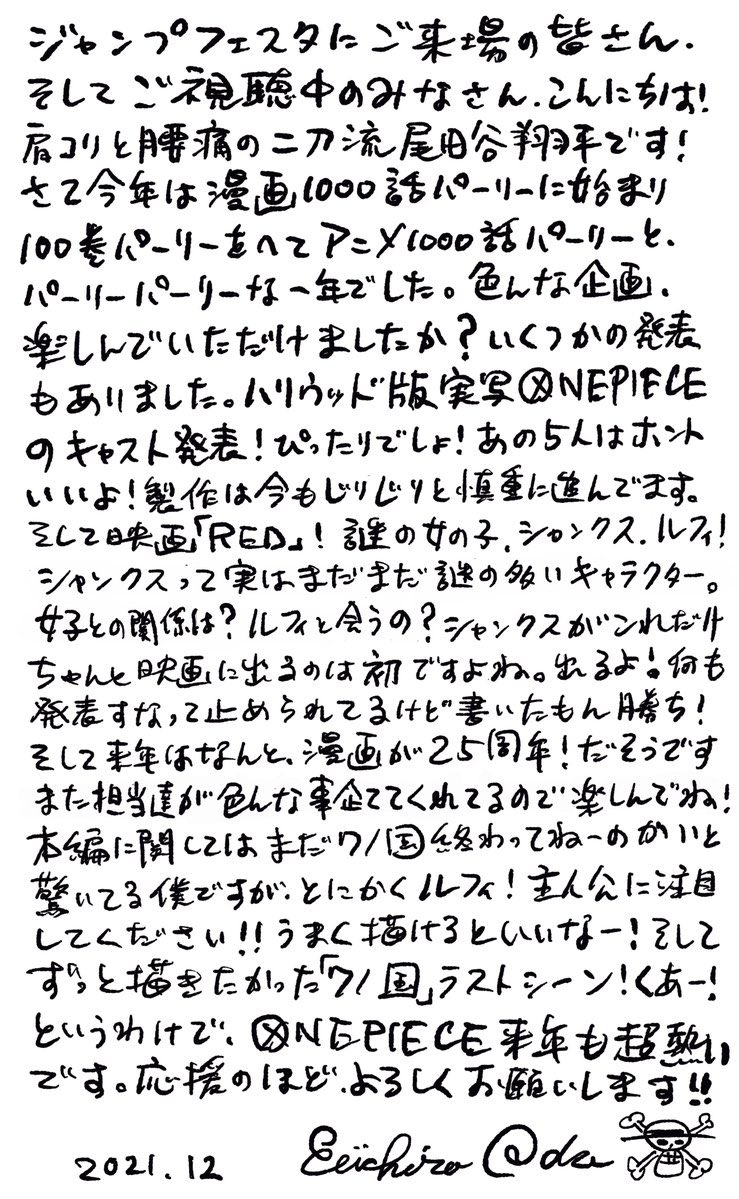 ジャンプフェスタにご来場の皆さん、
そしてご視聴中のみなさん、こんにちは!
肩コリと腰痛の二刀流尾田谷翔平です!
さて今年は漫画1000話パーリーに始まり
100巻パーリーをへてアニメ1000話パーリーと、
パーリーパーリーな一年でした。色んな企画、
楽しんでいただけましたか?いくつかの発表
もありました。ハリウッド版実写ONEPIECE
のキャスト発表!ぴったりでしょ!あの5人はホント
いいよ!製作は今もじりじりと慎重に進んでます。
そして映画「RED」!謎の女の子、シャンクス、ルフィ!
シャンクスって実はまだまだ謎の多いキャラクター。
女子との関係は?ルフィと会うの?シャンクスがこれだけ
ちゃんと映画に出るのは初ですよね。出るよ!何も
発表すなって止められてるけど書いたもん勝ち!
そして来年はなんと、漫画が25周年!だそうです
また担当達が色んな事企ててくれてるので楽しんでね!
本編に関してはまだワノ国終わってねーのかいと
驚いてる僕ですが、とにかくルフィ!主人公に注目
してください!!うまく描けるといいなー!そして
ずっと描きたかった「ワノ国」ラストシーン!くあー!
というわけで、ONEPIECE来年も超熱い
です。応援のほど、よろしくお願いします!!
2021.12 Eiichiro Oda